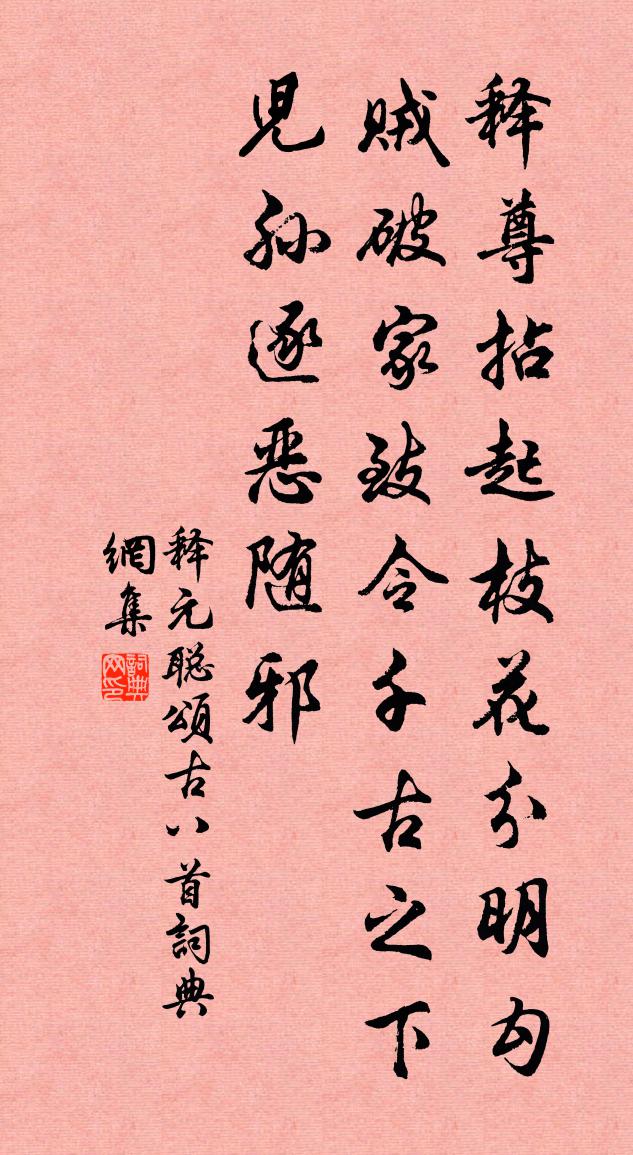 释尊拈起枝花分明勾
贼破家致令千古之下
児孙逐恶随邪
释元聪颂古八首詞典
網集
詞典
网印